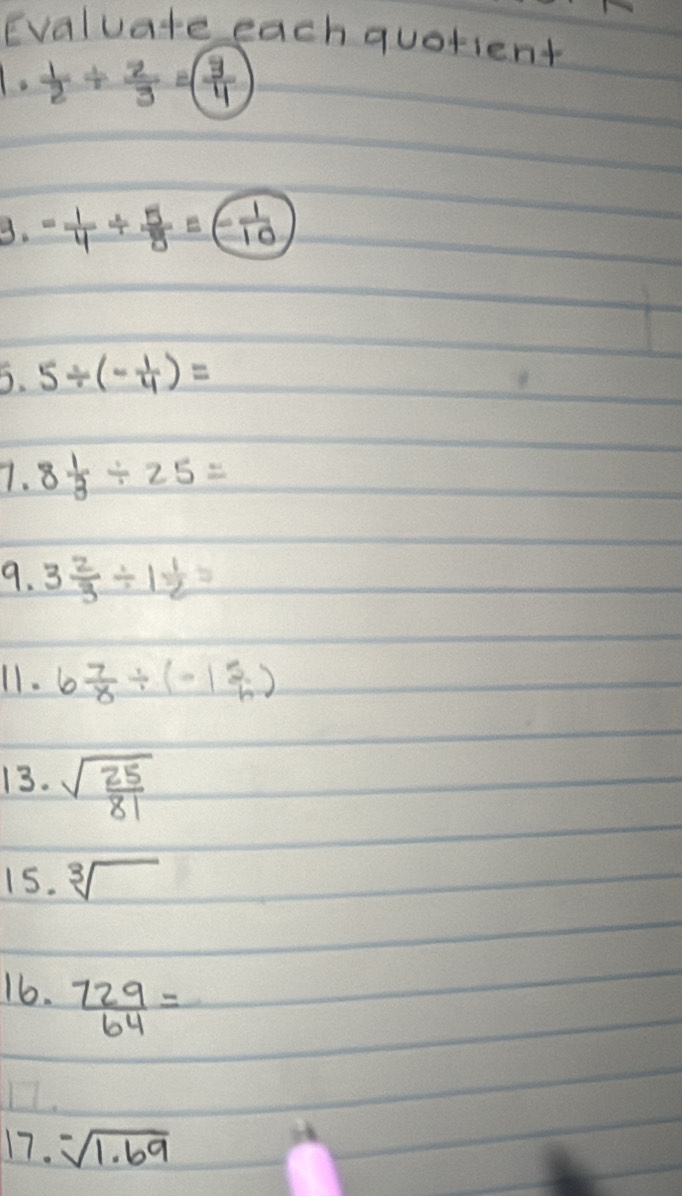 Evaluate each quotient
1. 1/2 ÷ 2/3 = 3/4
3. -1/4 ÷ 5/8 = -1/10
5. 5 ÷ (-1/4) =
7. 8 1/3 ÷ 25 =
9. 3 2/3 ÷ 1 1/2 =
11. 6 7/8 ÷ (-1 5/6)
13. √25/81
15. ∛
16. 729/64 =
17.
17. -√1.69